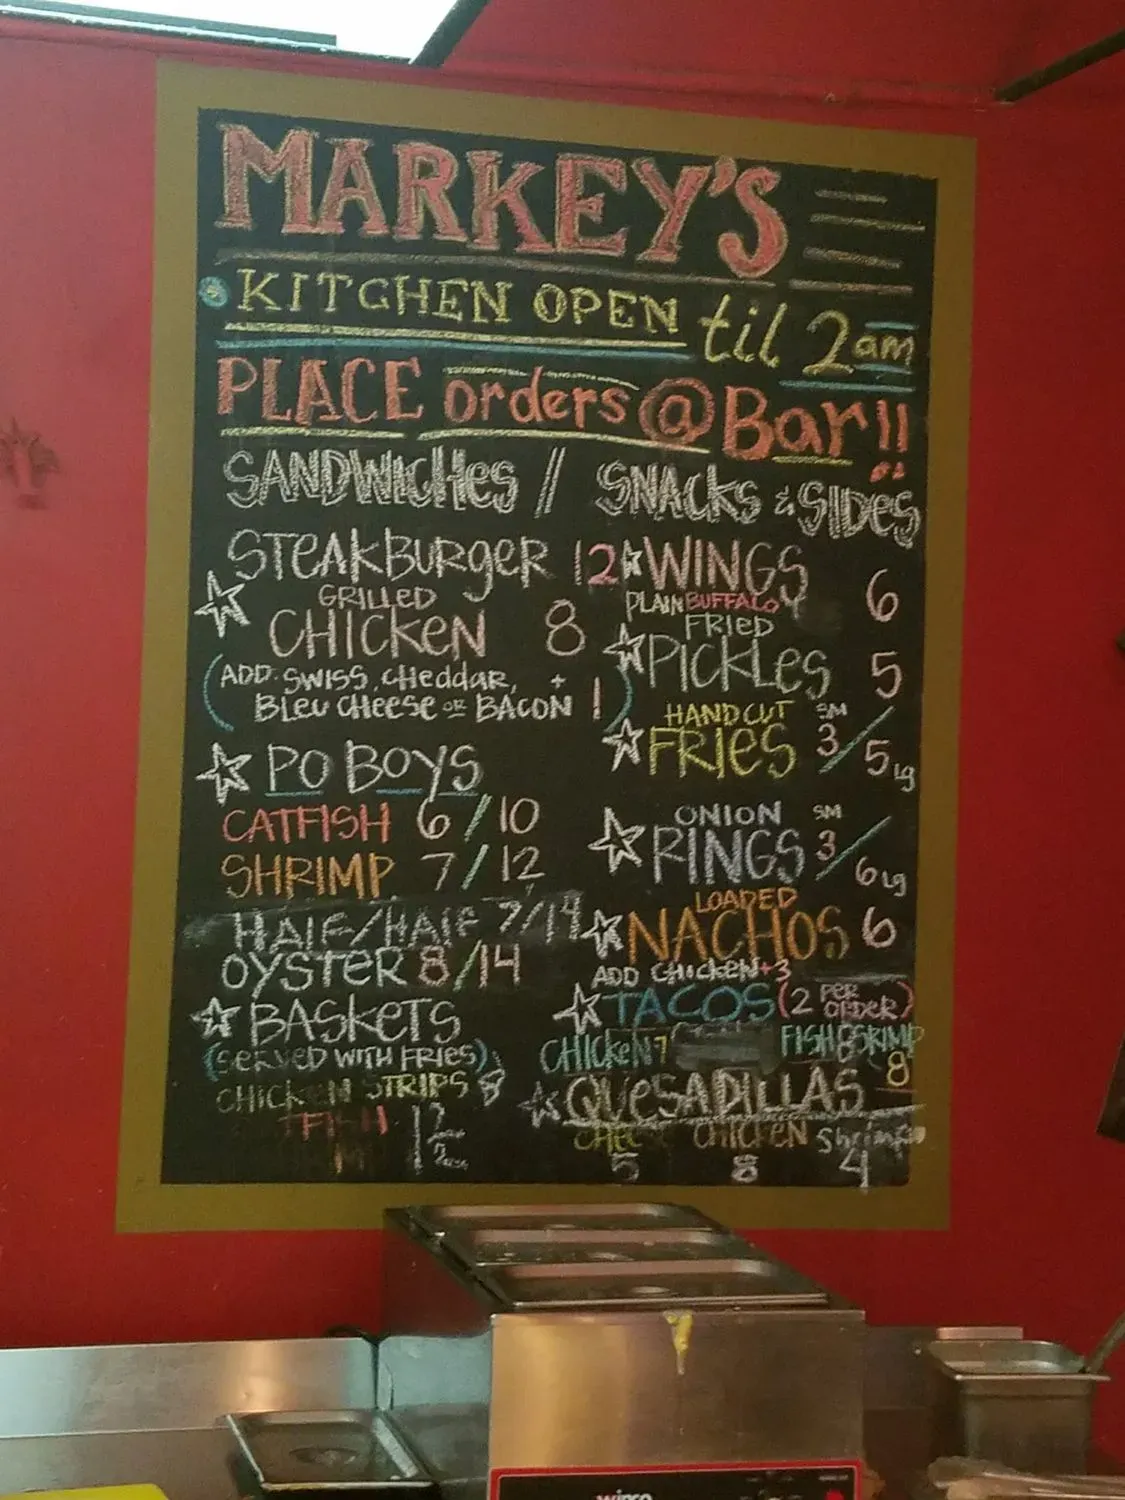 MARKEY'S
KITCHEN OPEN til 2am
PLACE orders @ Bar!!
SANDWICHes / SNACKs & SIDes
STeAKBURgeR 12
GRILLeD
CHICKeN 8
(ADD: SWISS, CHeddAR,
BLeU CHeese OR BACON + 1)
PO BOYS
CATFISH 6/10
SHRIMP 7/12
HALF/HALF 7/14
OYSTER 8/14
BASKeTS
(SeRVeD WITH FRIeS)
CHICKEN STRIPS 8
WINGS 6
PLAIN BUFFALO
FRIED
PICKLes 5
HAND CUT
FRIeS SM 3/5 Lg
ONION
RINGS SM 3/6 Lg
LOADED
NACHOS 6
ADD CHICKeN +3
TACOS (2 PER ORDeR)
CHICKeN 7 FISH & SRIMP 8
QUeSADILLAS
CHICKEN
5 8 4
winco